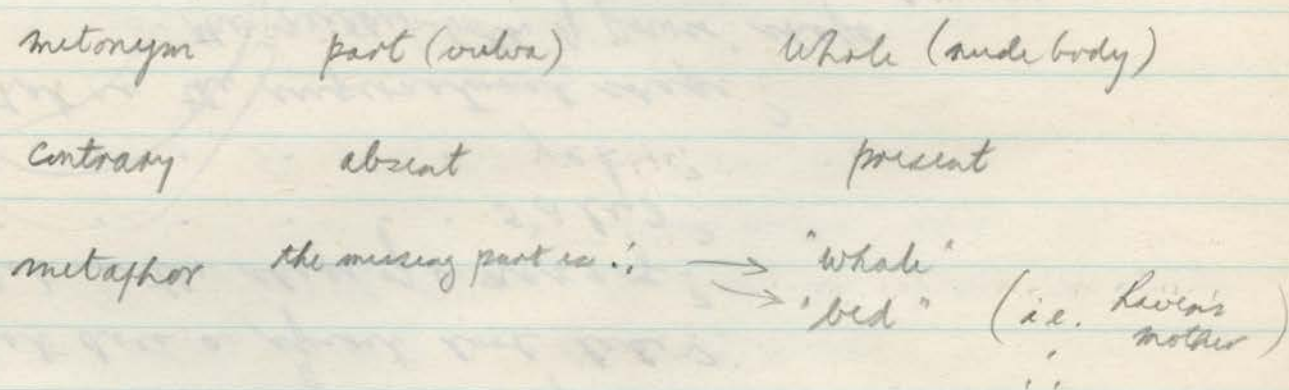 metonym part (vulva) Whole (nude body)
Contrary absent present
metaphor the missing part is ∴ → "whale"
→ "bed" (i.e. Raven's
mother)